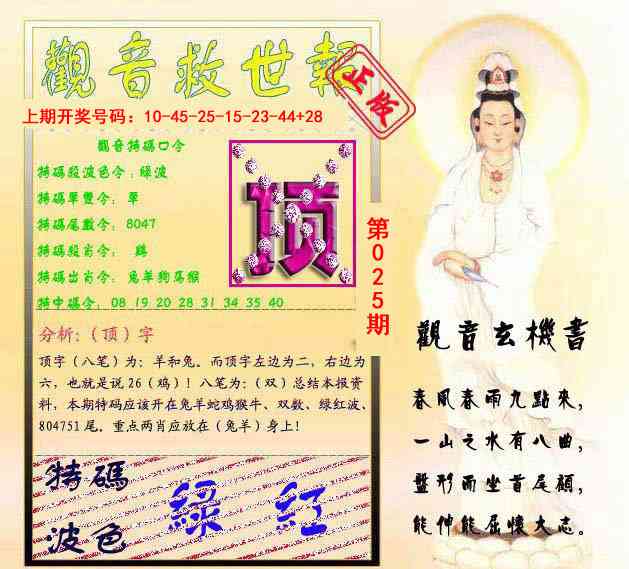 觀音救世報
正版
上期开奖号码：10-45-25-15-23-44+28
觀音特碼口令
特碼段波色令：綠波
特碼單雙令： 單
特碼尾數令： 8047
特碼殺肖令： 鷄
特碼出肖令： 兔羊狗馬猴
特中碼令： 08 19 20 28 31 34 35 40
顶
第025期
分析：（顶）字
顶字（八笔）为：羊和兔。而顶字左边为二，右边为
六，也就是说26（鸡）！八笔为：（双）总结本报资
料，本期特码应该开在兔羊蛇鸡猴牛、双数、绿红波、
804751尾。重点两肖应放在（兔羊）身上！
特碼
波色
綠 紅
觀音玄機書
春風春雨九點來，
一山之水有八曲，
盤形而坐首尾顧，
能伸能屈懷大志。